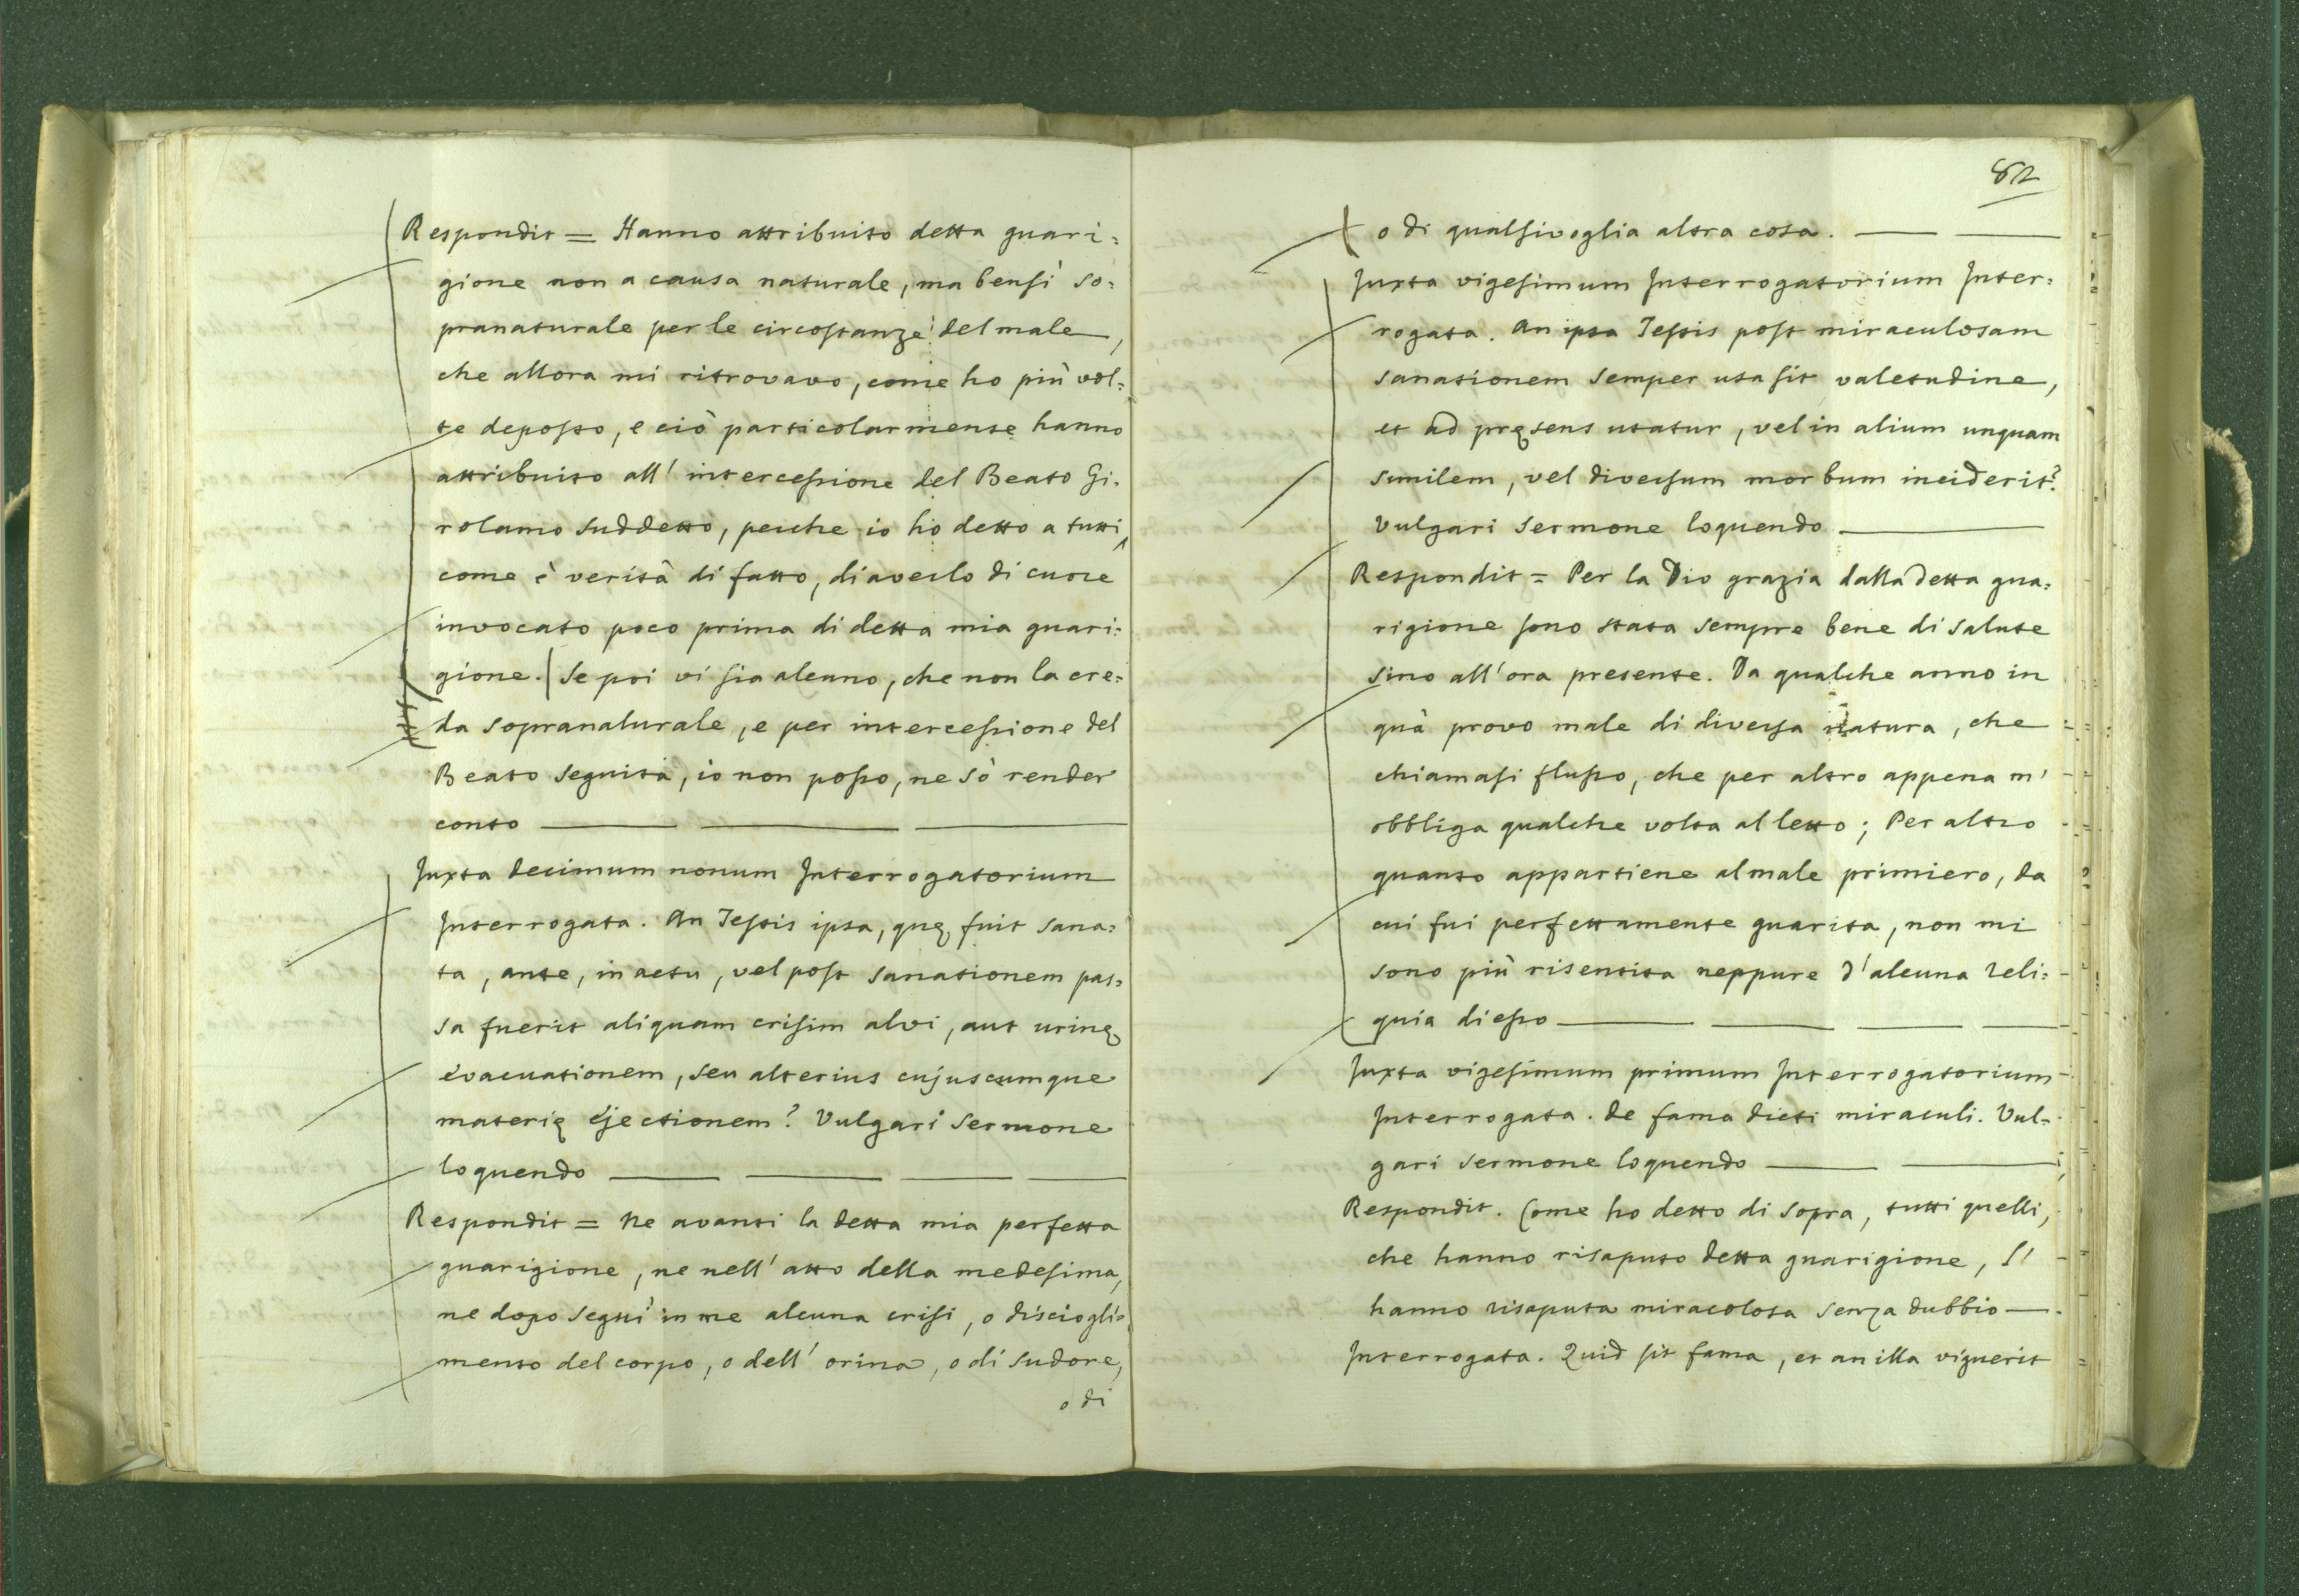 Respondit = Hanno attribuito detta guari=
gione non a causa naturale, ma bensì so=
pranaturale per le circostanze del male,
che allora mi ritrovavo, come ho più vol=
te deposto, e ciò particolarmente hanno
attribuito all' intercessione del Beato Gi=
rolamo suddetto, perche io ho detto a tutti,
come è verità di fatto, di averlo di cuore
invocato poco prima di detta mia guari=
gione. Se poi vi sia alcuno, che non la cre=
da sopranaturale, e per intercessione del
Beato seguita, io non posso, ne sò render
conto
Juxta decimum nonum Interrogatorium
Interrogata. An Testis ipsa, quę fuit sana=
ta, ante, in actu, vel post sanationem pas=
sa fuerit aliquam crisim alvi, aut urinę
evacuationem, seu alterius cujuscumque
materię ejectionem? Vulgari sermone
loquendo
Respondit = Ne avanti la detta mia perfetta
guarigione, ne nell' atto della medesima,
ne dopo seguì in me alcuna crisi, o discioglio=
mento del corpo, o dell' orina, o di sudore,
o di
82
o di qualsivoglia altra cosa.
Juxta vigesimum Interrogatorium Inter=
rogata. An ipsa Testis post miraculosam
sanationem semper usa sit valetudine,
et ad pręsens utatur, vel in alium unquam
similem, vel diversum morbum inciderit?
Vulgari sermone loquendo
Respondit = Per la Dio grazia dalla detta gua=
rigione sono stata sempre bene di salute
sino all'ora presente. Da qualche anno in
quà provo male di diversa natura, che
chiamasi flusso, che per altro appena m'
obbliga qualche volta al letto; Per altro
quanto appartiene al male primiero, da
cui fui perfettamente guarita, non mi
sono più risentita neppure d'alcuna reli=
quia di esso
Juxta vigesimum primum Interrogatorium
Interrogata. de fama dicti miraculi. Vul=
gari sermone loquendo
Respondit. Come ho detto di sopra, tutti quelli,
che hanno risaputo detta guarigione, l'
hanno risaputa miracolosa senza dubbio
Interrogata. Quid sit fama, et an illa viguerit